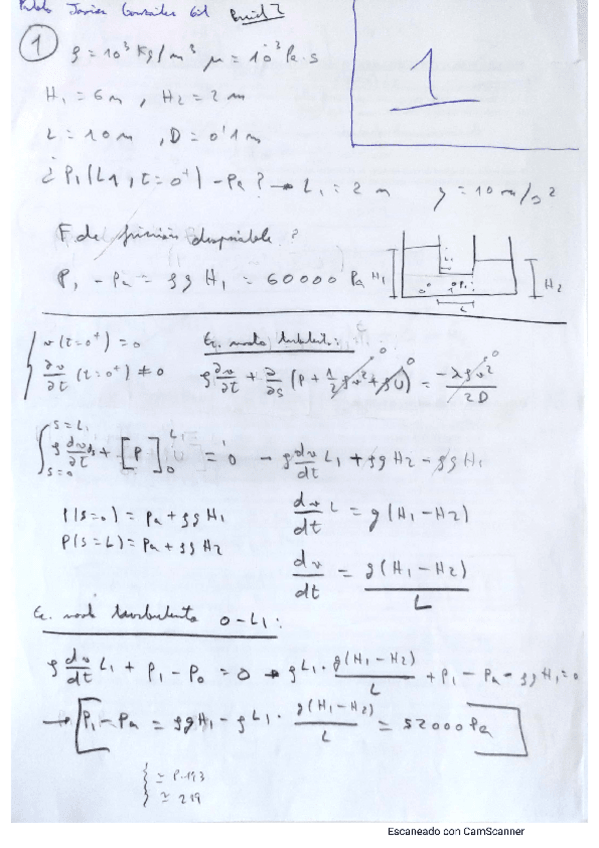 Pablo Javier González Gil
1
ρ = 10³ Kg/m³ μ = 10⁻³ Pa·s
1
H₁ = 6 m , H₂ = 2 m
L = 10 m , D = 0'1 m
¿ P₁(L1, t = 0⁺) - Pa ? → L₁ = 2 m g = 10 m/s²
F de fricción despreciable ?
P₁ - Pa = ρ g H₁ = 60000 Pa
H₁
H₂
L
v(t=0⁺) = 0
∂v/∂t (t=0⁺) ≠ 0
Ec. mov turbulent.:
ρ ∂v/∂t + ∂/∂s (P + 1/2 ρv² + ρU) = -λρv²/2D
∫ s=0 s=L₁ ρ ∂v/∂t ds + [P]₀^L₁ = 0 - ρ dv/dt L₁ + ρgH₂ - ρgH₁
P(s=0) = Pa + ρgH₁
P(s=L) = Pa + ρgH₂
dv/dt L = g(H₁ - H₂)
dv/dt = g(H₁ - H₂)/L
Ec. mov turbulento 0-L₁:
ρ dv/dt L₁ + P₁ - P₀ = 0 → ρL₁ · g(H₁-H₂)/L + P₁ - Pa - ρgH₁ = 0
→ [P₁ - Pa = ρgH₁ - ρL₁ · g(H₁-H₂)/L = 52000 Pa]
Escaneado con CamScanner